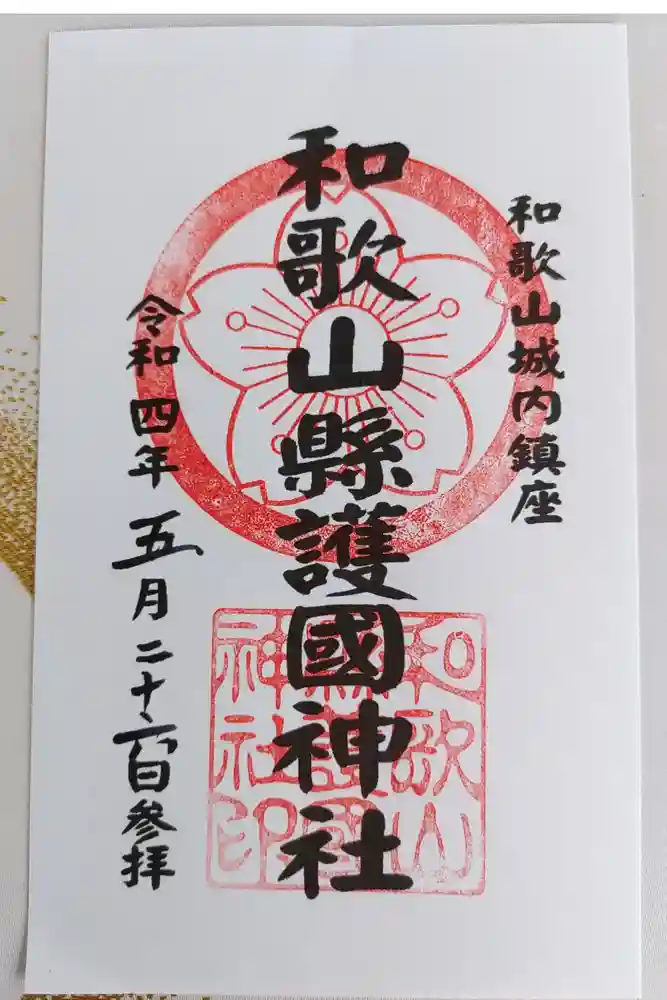 和歌山城内鎮座
和歌山縣護國神社
令和四年五月二十六日参拝
和歌山縣護國神社印